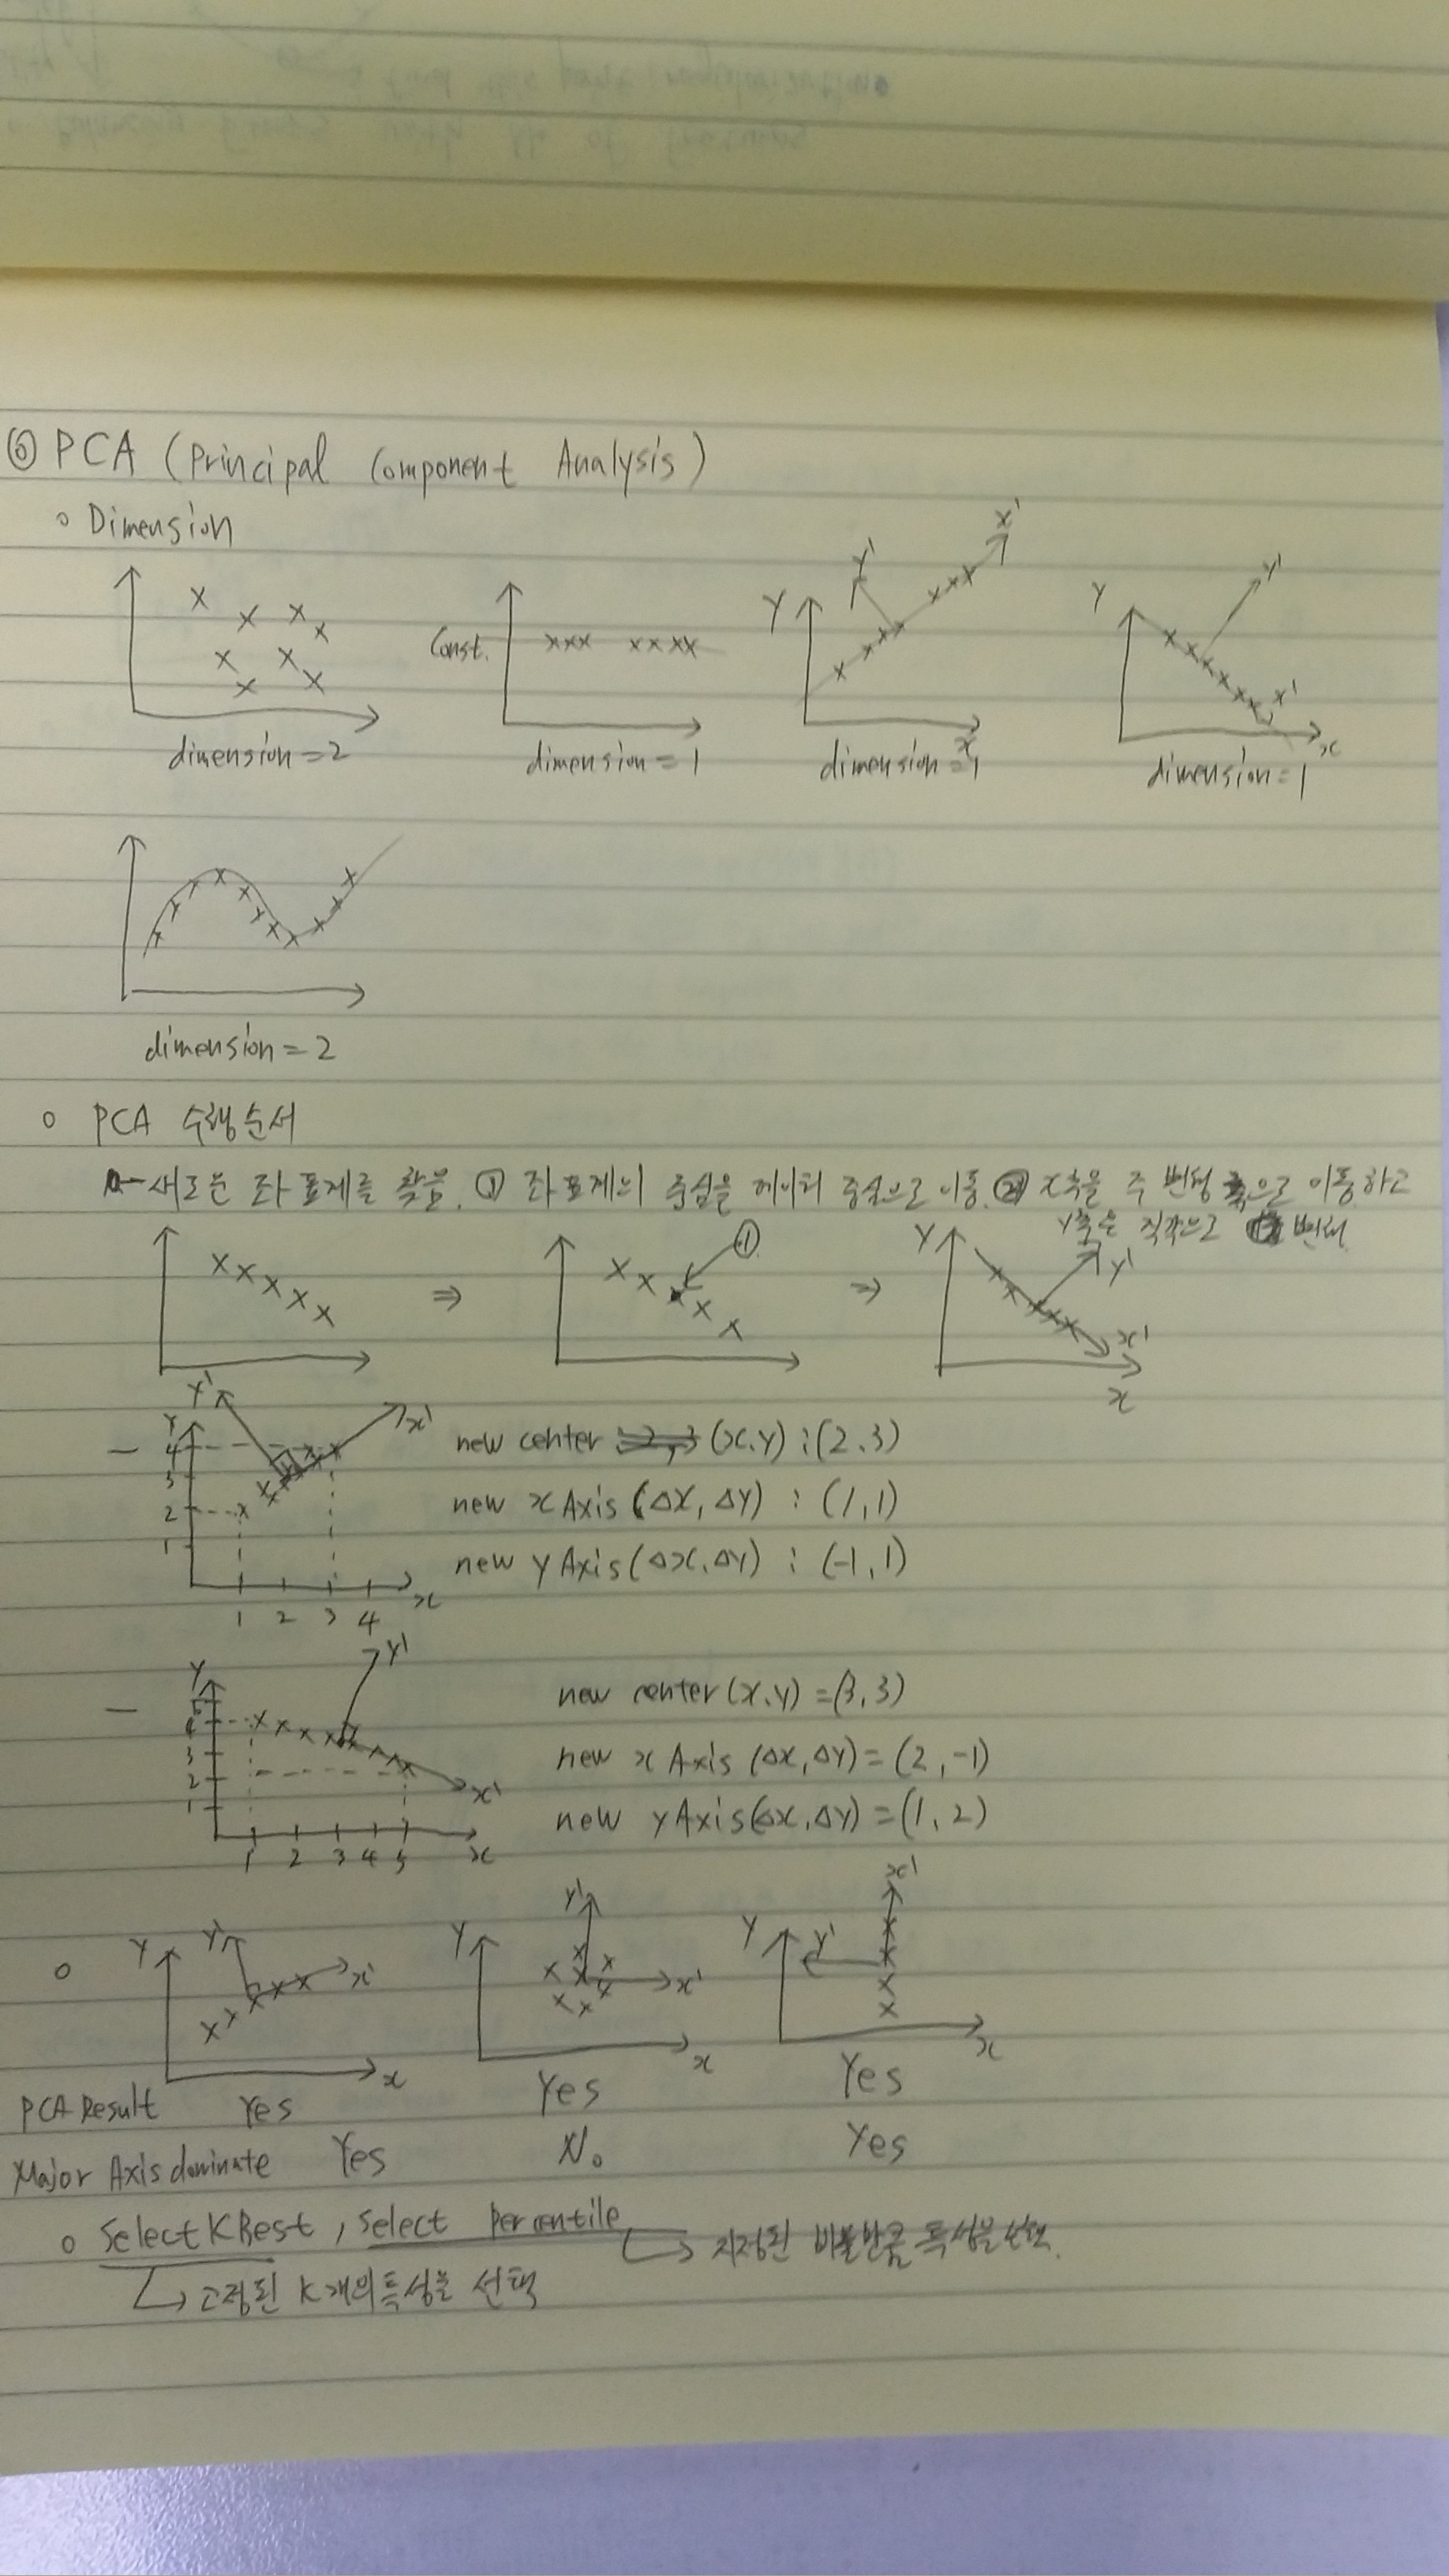 ⑥ PCA (Principal Component Analysis)
○ Dimension
Const.
Y Y' x' x
Y Y' x' x
dimension=2 dimension=1 dimension=1 dimension=1
dimension=2
○ PCA 수행순서
- 새로운 좌표계를 찾음. ① 좌표계의 중심을 데이터 중심으로 이동. ② x축을 주 변형 축으로 이동하고
Y축은 직각으로
⇒ ① ⇒ Y Y' x' x
- Y' x' Y 4 3 2 1
1 2 3 4 x
new center (x.y) : (2.3)
new x Axis (ΔX, ΔY) : (1,1)
new y Axis (Δx.ΔY) : (-1,1)
- Y' Y 5 4 3 2 1 x'
1 2 3 4 5 x
new center (x.y) = (3,3)
new x Axis (Δx,ΔY) = (2,-1)
new y Axis (Δx,ΔY) = (1,2)
○ Y Y' x' x Y Y' x' x Y Y' x' x
PCA Result Yes Yes Yes
Major Axis dominate Yes No Yes
○ Select K Best, Select Percentile → 지정된 비율만큼 특성을 선택.
→ 고정된 K개의 특성을 선택